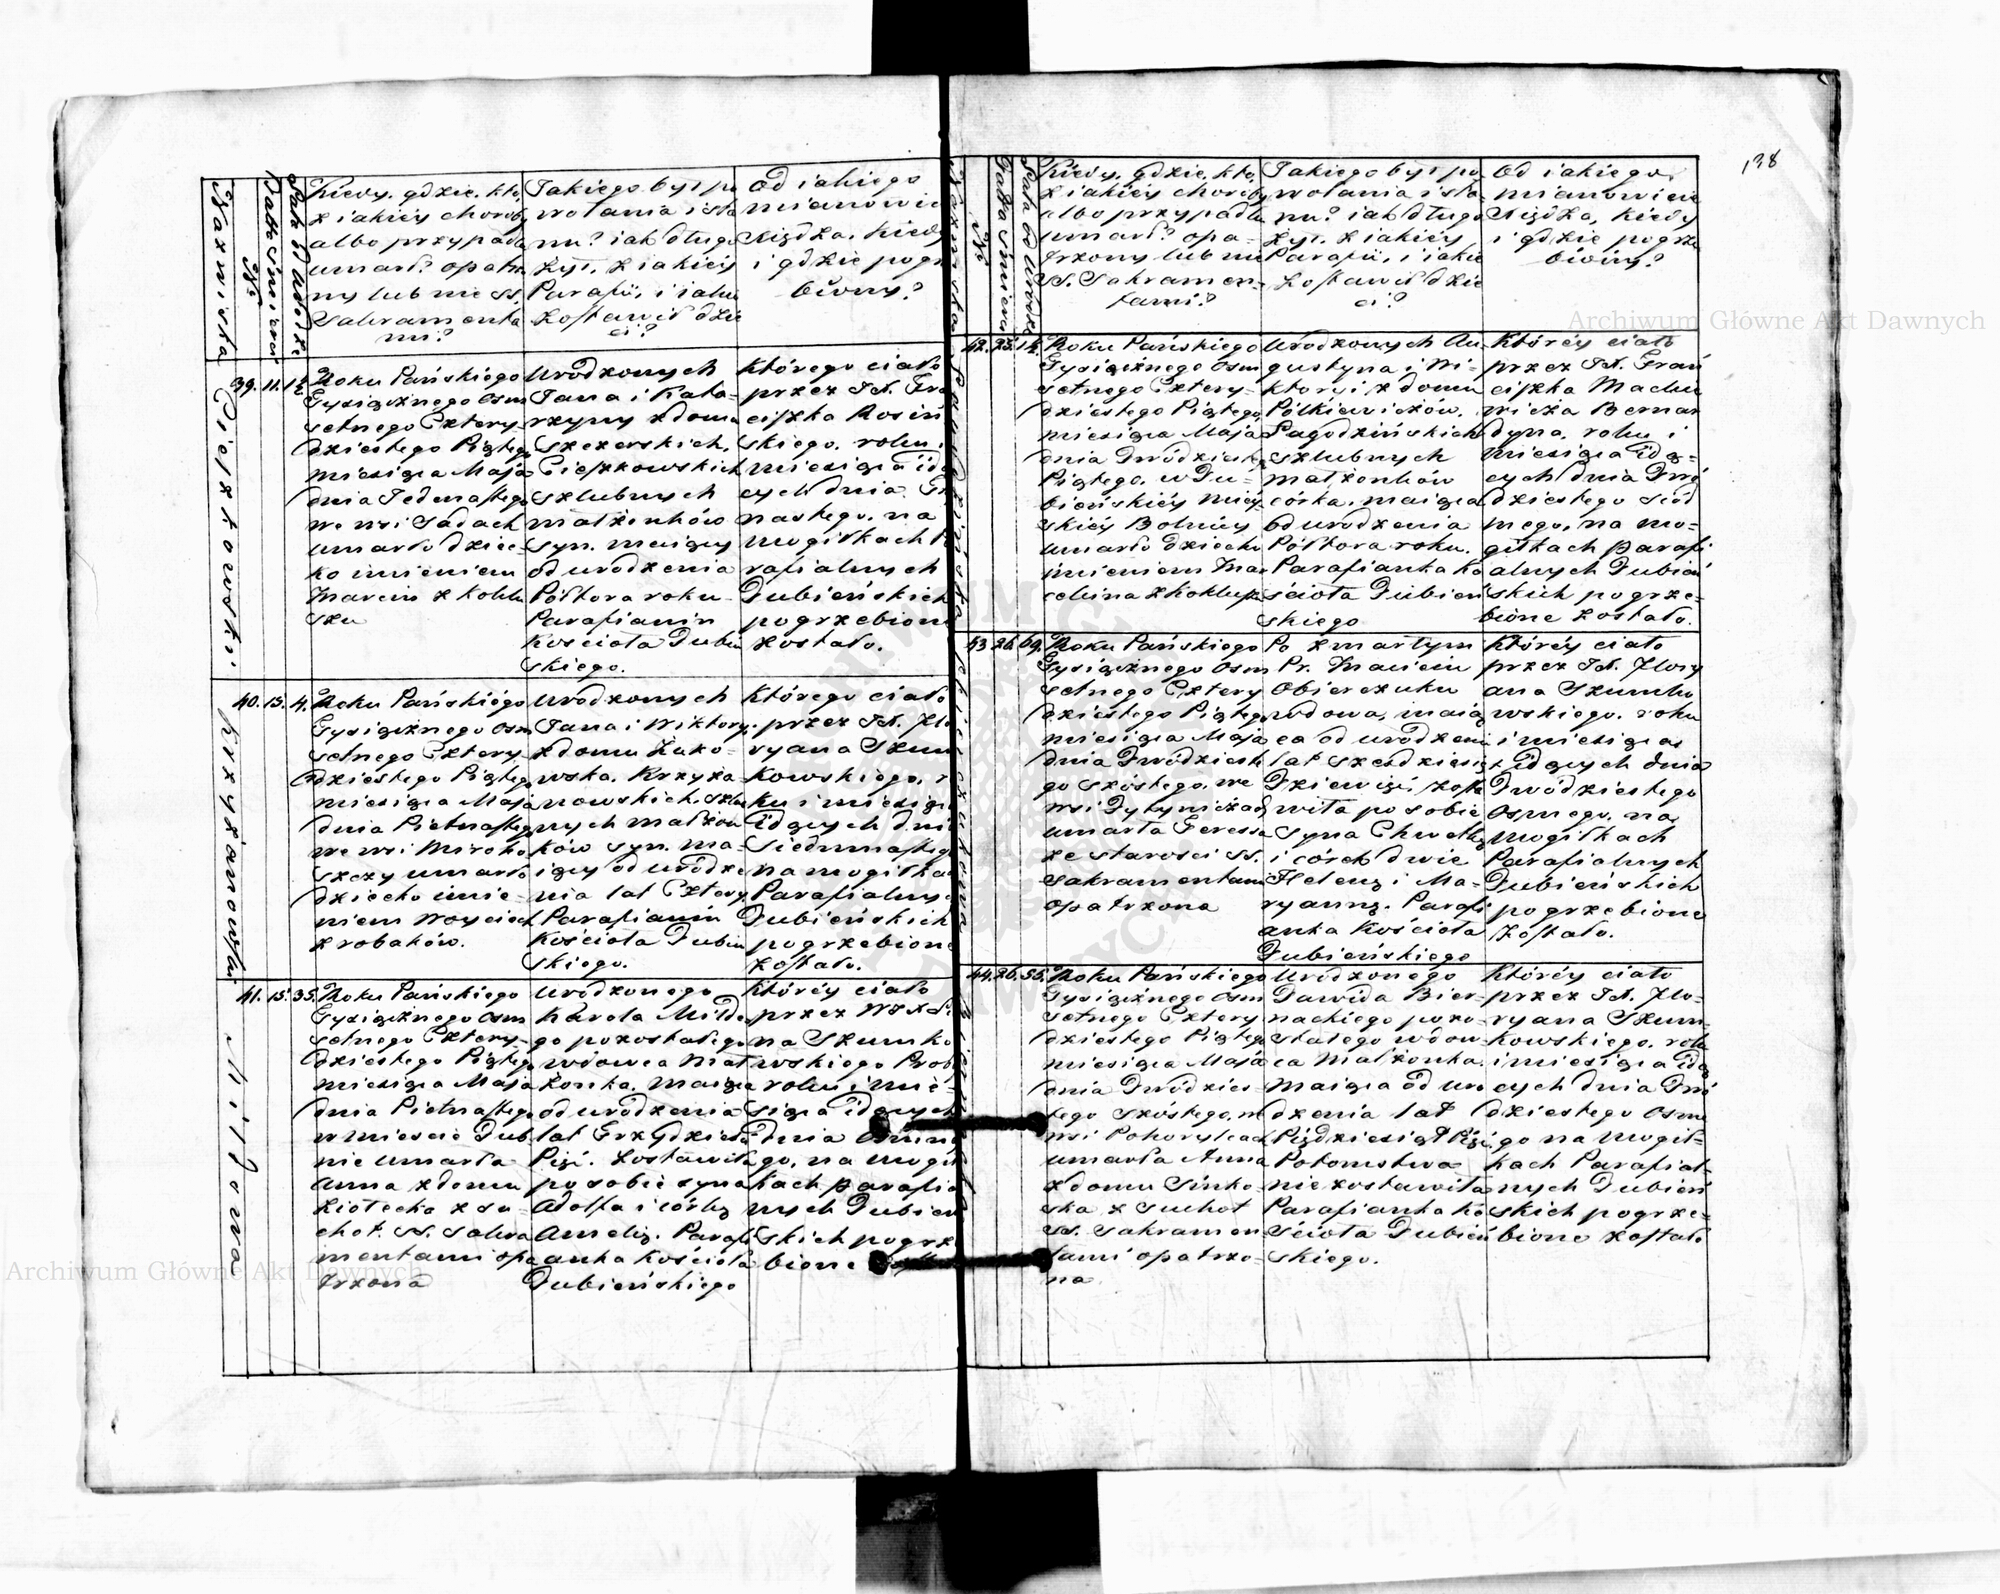 138
Nazwiska
№
Data Śmierci
Lata od Urodze
Kiedy, gdzie, kto,
z iakiéy choroby
albo przypadk
umarł? opatrz
ny lub nie SS.
Sakramenta
mi?
Jakiego był po
wołania i sta
nu? iak długo
żył, z iakiéy
Parafii, i iakie
zostawił dzie
ci?
Od iakiego
mianowic
Xiędza, kiedy
i gdzie pogr
biony?
Cieszkowski
39. 11. 1½
Roku Pańskiego
Tysiącznego Osm
setnego Cztery-
dziestego Piątego
miesiąca Maja
dnia Jedenastego
we wsi Sadach
umarło dziec-
ko imieniem
Marcin z koklu
szu
Urodzonych
Jana i Kata-
rzyny z domu
Szczerskich,
Cieszkowskich
szlubnych
małżonków
syn, maiący
od urodzenia
Półtora roku
Parafianin
Kościoła Dubień
skiego.
Którego ciało
przez JX. Fra
ciszka Rosiń
skiego, roku i
miesiąca idą
cych dnia Trzy
nastego, na
mogiłkach Pa
rafialnych
Dubieńskich
pogrzebione
zostało.
Krzyżanowski
40. 15. 4.
Roku Pańskiégo
Tysiącznego Osm
setnego Cztery
dziestego Piątego
miesiąca Maja
dnia Pietnastego
we wsi
umarło
dziecko imie-
niem Woyciech
z robaków.
Urodzonych
Jana i Wiktoryi
z domu
Krzyża
nowskich szlu
nych małżon
ków syn, ma-
iący od urodze
nia lat Cztery
Parafianin
Kościoła Dubień
skiego.
Którego ciało
przez JX. Flo
ryana Szum
kowskiego, ro
ku i miesiąca
idących dnia
Siedmnastego
na mogiłkach
Parafialnych
Dubieńskich
pogrzebione
zostało.
Mildowa
41. 15. 35.
Roku Pańskiego
Tysiącznego Osm
setnego Cztery-
dziestego Piątego
miesiąca Maja
dnia Pietnastego
w mieście Dub
nie umarła
Anna z domu
Ziołecka z su
chot, SS. Sakra
mentami opa
trzona
Urodzonego
Karola Milde-
go pozostałego
wdowca mał
żonka, maiąca
od urodzenia
lat Trzydzieści
Pięć. Zostawiła
po sobie syna
Adolfa i córkę
Amelię. Parafi
anka Kościoła
Dubieńskiego
Któréy ciało
przez
na Szumko
wskiego Prob
roku i mie-
siąca idących
dnia Ośmna
go, na mogił
kach parafia
nych Dubień
skich pogrze
bione
Nazwiska
№
Data Śmierci
Lata od Urodz
Kiedy, gdzie, kto,
z iakiéy choroby
albo przypadku
umarł? opa-
trzony lub nie
SS. Sakramen-
tami?
Jakiego był po
wołania i sta-
nu? iak długo
żył, z iakiéy
Parafii, i iakie
zostawił dzie
ci?
Od iakiego
mianowicie
Xiędza, kiedy
i gdzie pogrze
biony?
42. 25. 1½.
Roku Pańskiego
Tysiącznego Osm
setnego Cztery-
dziestego Piątego
miesiąca Maja
dnia Dwódziesto
Piątego, w Du-
bieńskiéy Miéy
skiéy Bolnicy
umarło dziecko
imieniem Mar
celina z kokluszu
Urodzonych Au
gustyna i Wi-
ktoryi z domu
Półkiewiczów,
Pagodzińskich
szlubnych
małżonków
córka, maiąca
od urodzenia
Półtora roku.
Parafianka Ko
ścioła Dubień
skiego
Któréy ciało
przez JX. Fran
ciszka Machu
wicza Bernar
dyna, roku i
miesiąca idą-
cych dnia Dwó
dziestego Siód
mego, na mo-
giłkach parafi
alnych Dubień
skich pogrze-
bione zostało.
43 26. 69.
Roku Pańskiego
Tysiącznego Osm
setnego Cztery
dziestego Piątego
miesiąca Maja
dnia Dwódzieste
go szóstego, we
wsi
umarła Teressa
ze starości SS.
Sakramentami
opatrzona
Po zmartym
Pr. Macieiu
Obierczuku
wdowa, maią
ca od urodzenia
lat sześdziesiąt
Dziewięć, zosta
wiła po sobie
syna
i córek dwie
Helenę i Ma-
ryannę. Parafi
anka Kościoła
Dubieńskiego
Któréy ciało
przez JX. Flory
ana Szumko
wskiego, roku
i miesiąca
idących dnia
Dwódziestego
Osmego, na
Mogiłkach
Parafialnych
Dubieńskich
pogrzebione
zostało.
44. 26. 55.
Roku Pańskiego
Tysiącznego Osm
setnego Cztery
dziestego Piątego
miesiąca Maja
dnia Dwódzies-
tego szóstego, w
wsi Pohorylcach
umarła Anna
z domu Sinko-
ska z Suchot
SS. Sakramen
tami opatrzo-
na
Urodzonego
Dawida Bier-
nackiego pozo-
stałego wdow-
ca Małżonka,
maiąca od uro
dzenia lat
Pięździesiąt Pięć.
Potomstwa
nie zostawiła
Parafianka Ko
ścioła Dubień
skiego.
Któréy ciało
przez JX. Flo-
ryana Szum-
kowskiego, roku
i miesiąca idą
cych dnia Dwó
dziestego Osme
go na Mogił-
kach Parafial-
nych Dubień
skich pogrze-
bione zostało
Archiwum Główne Akt Dawnych
Archiwum Główne Akt Dawnych